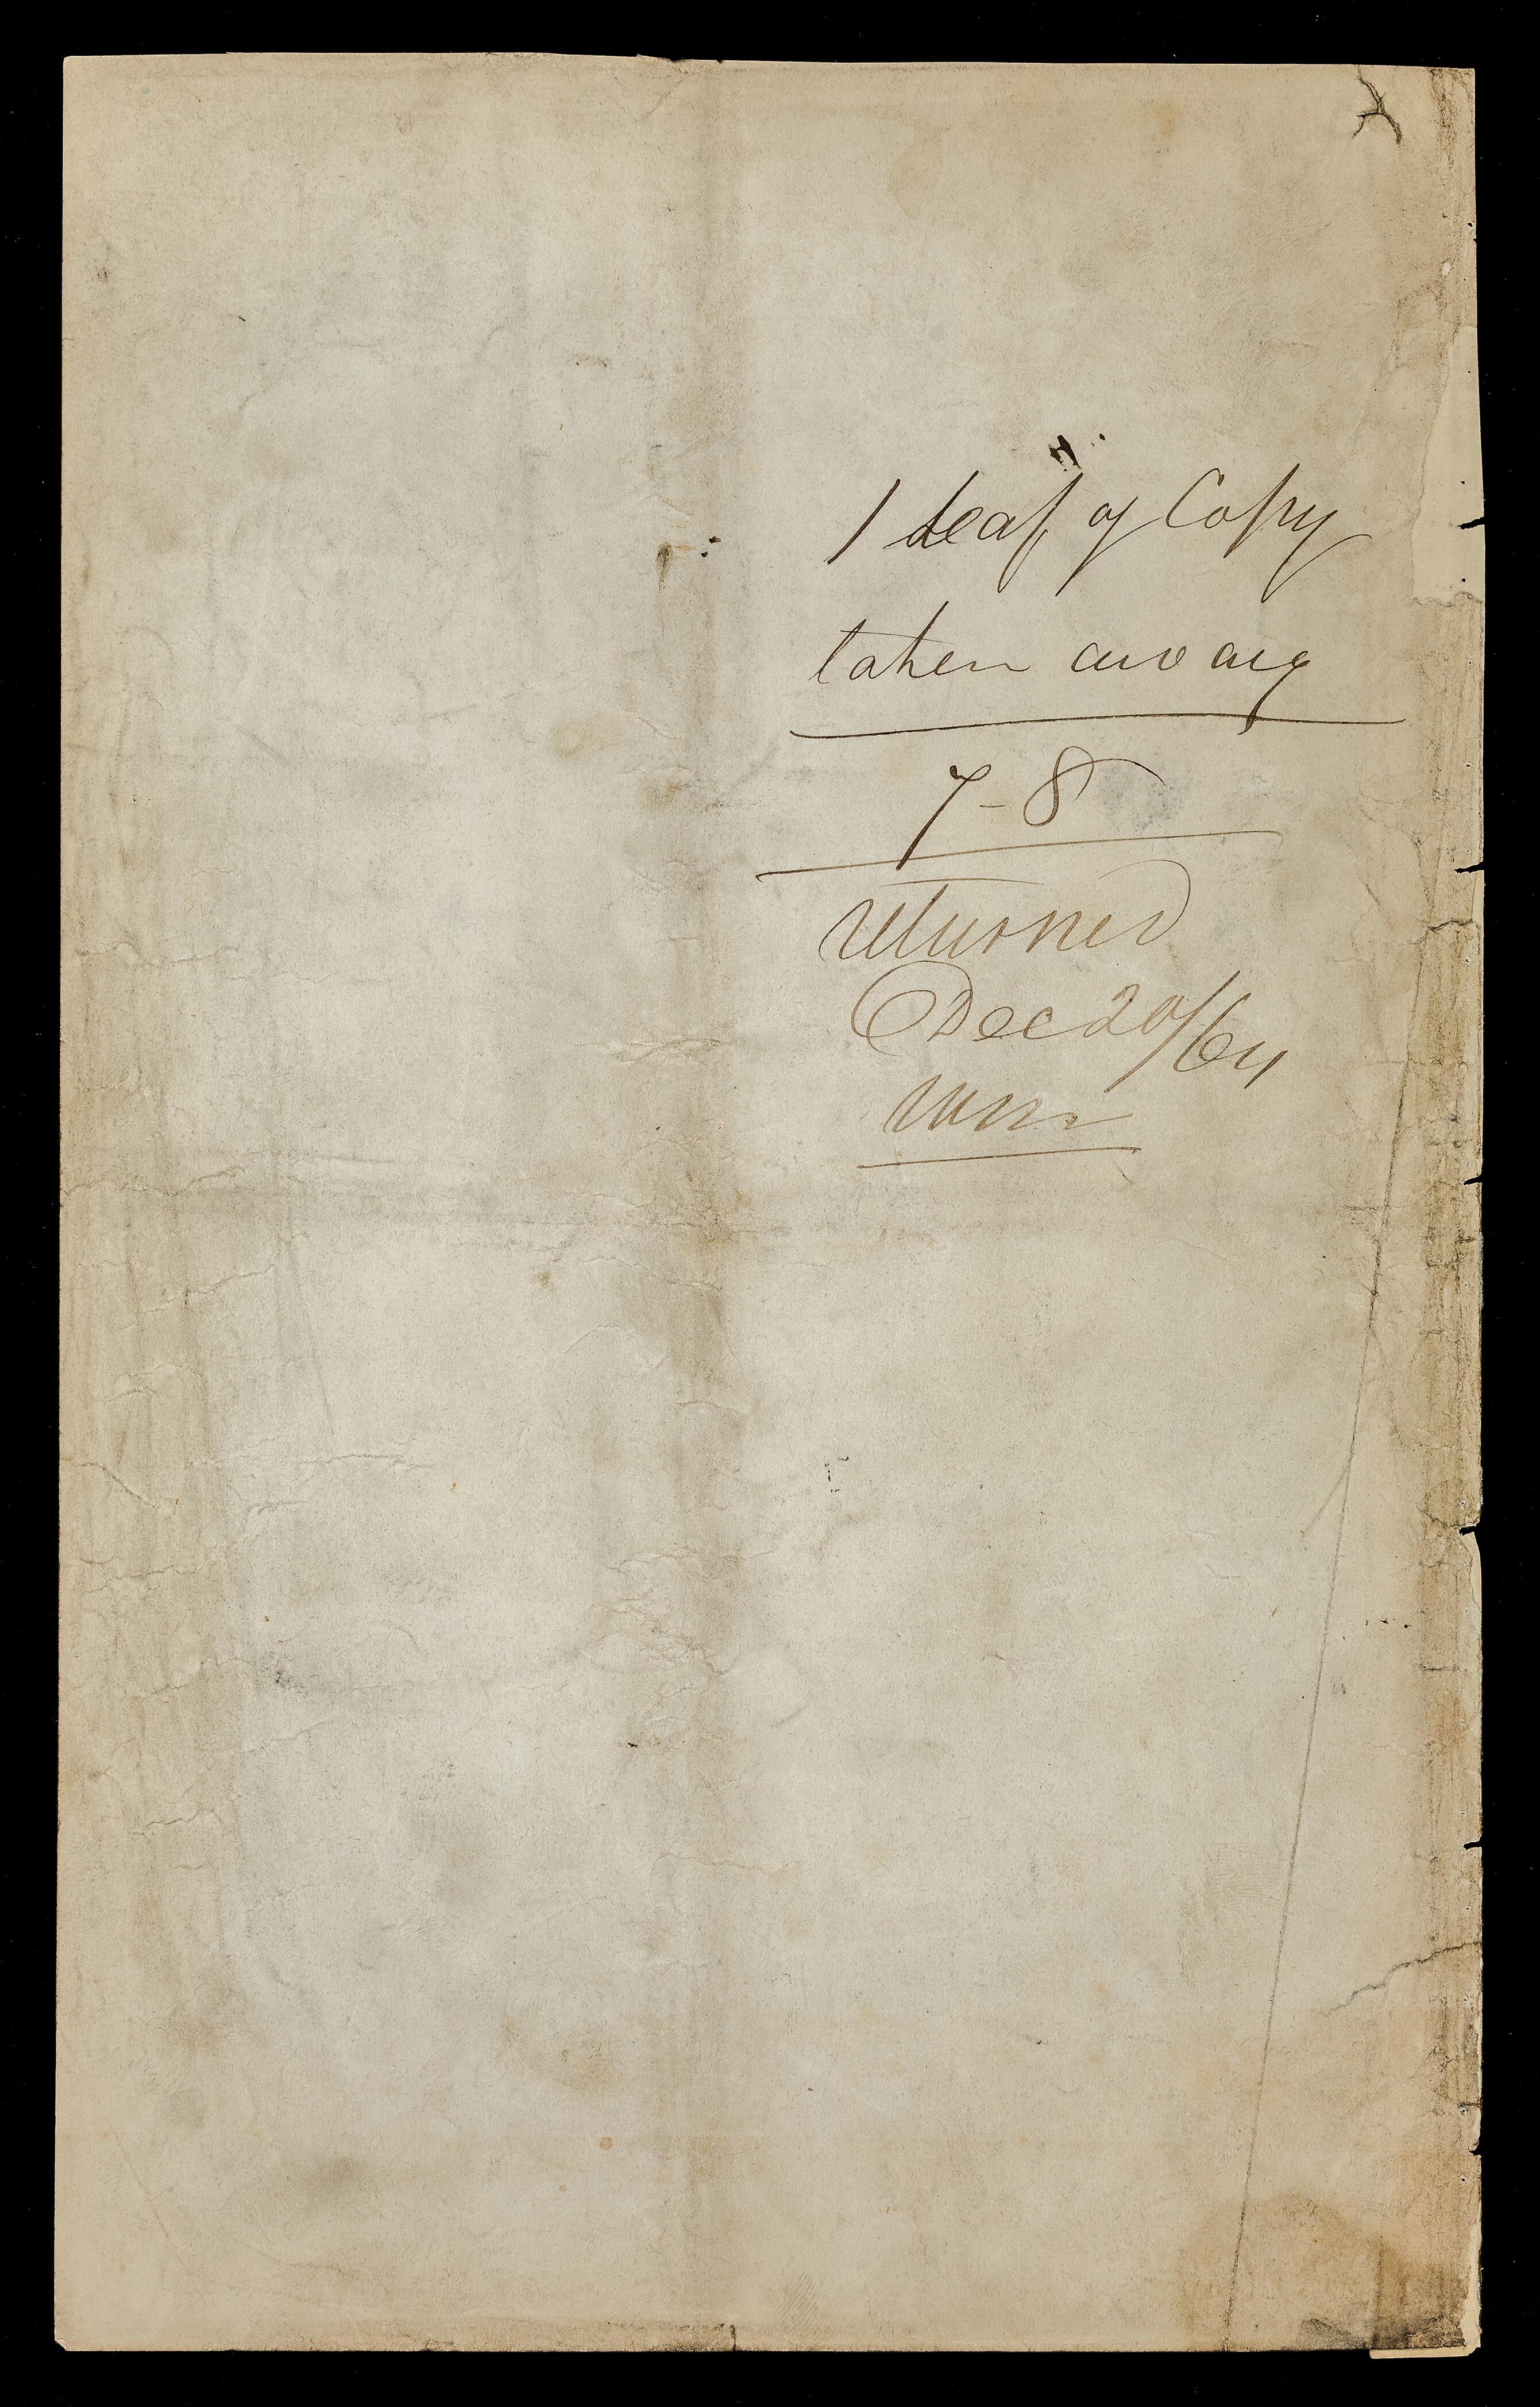 1 Leaf of Copy
taken away
7-8
returned
Dec 20/64